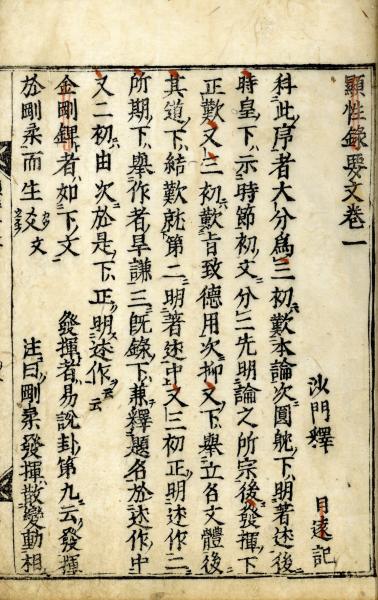 顯性録要文巻一
沙門釋 日遠記
科此序者大分爲三初歎本論次圓躰下明著述後
時皇下示時節初文分三先明論之所宗後發揮下
正歎又三初歎旨致德用次抑又下舉立名文體後
其道下結歎就第二明著述中又三初正明述作二
所期下舉作者早謙三既錄下兼釋題名於述作中
又二初由次於是下正明述作云云
金剛錍者如下文 發揮者易説卦第九云發揮
於剛柔而生爻文 注曰剛柔發揮散變動相